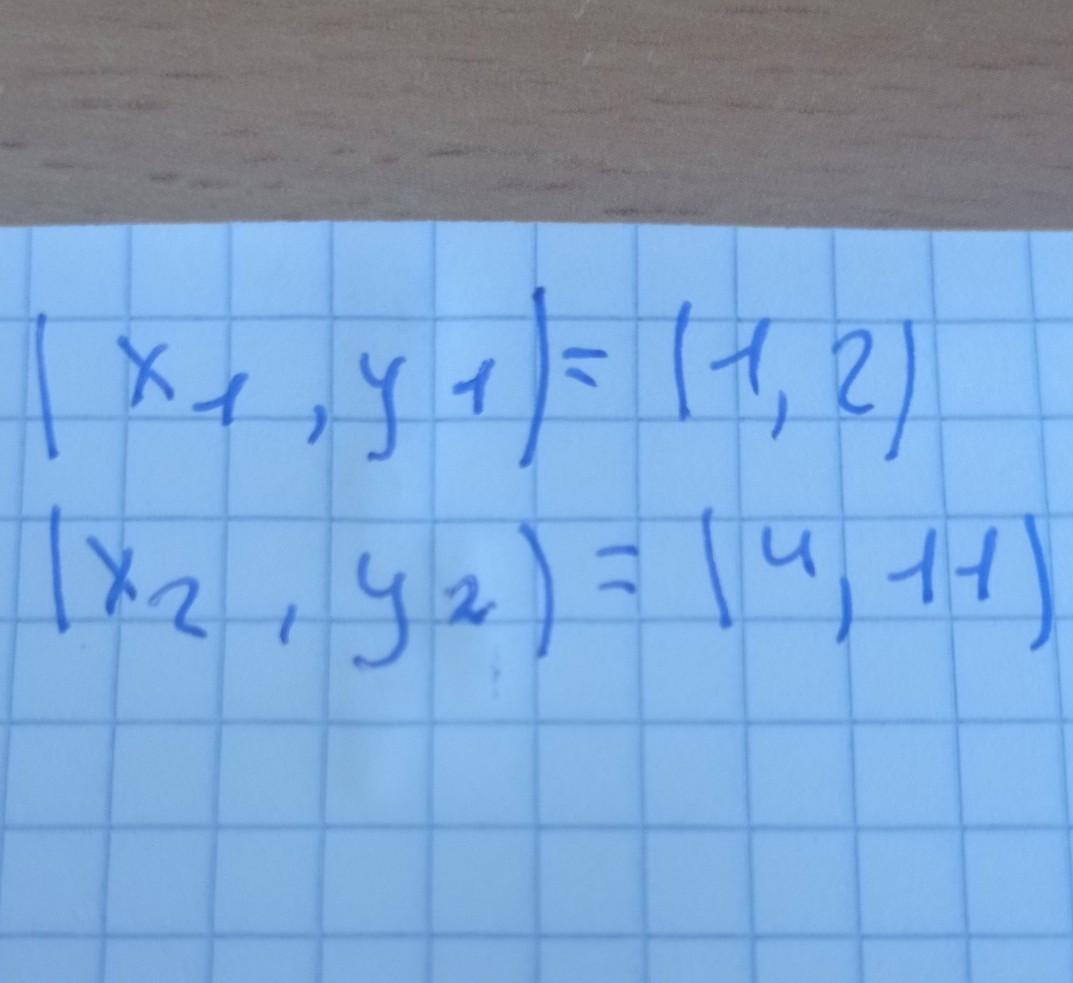 (x₁, y₁) = (1, 2)
(x₂, y₂) = (4, 11)